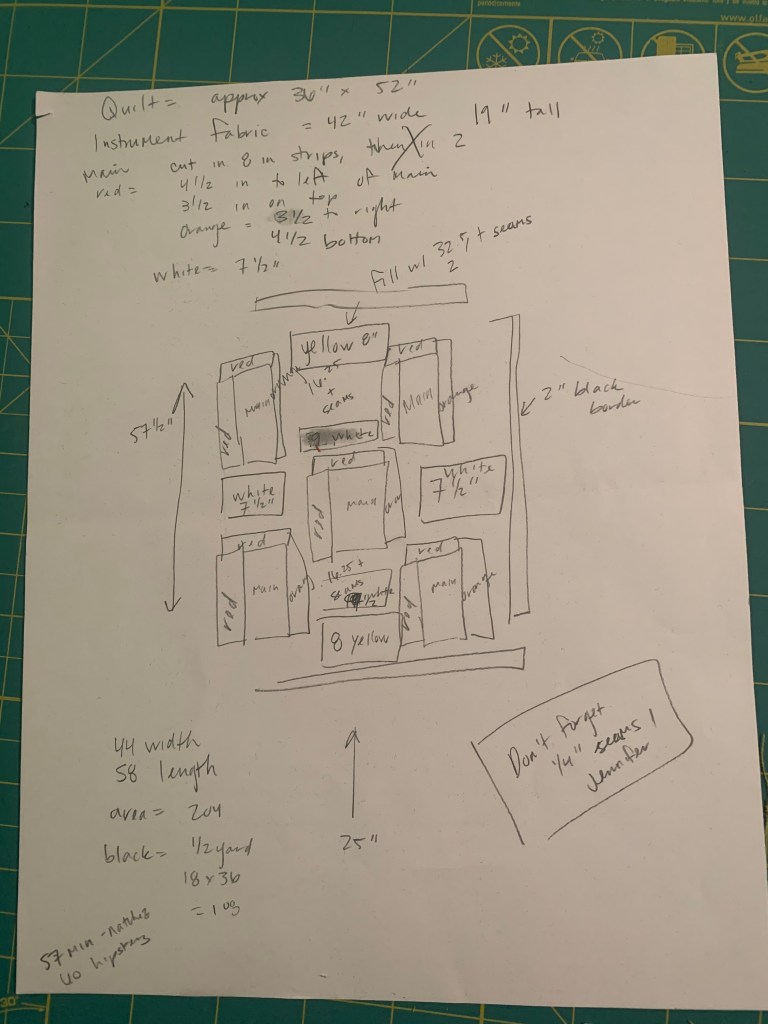 periodistorne
www.olfa
Quilt = approx 36" x 52"
Instrument Fabric = 42" wide 19" tall
Main cut in 8 in strips, then in 2
red = 4 1/2 in to left of main
3 1/2 in on top
orange = 3 1/2 to right
4 1/2 bottom
white = 7 1/2"
Fill w/ 32.5 + seams
2
yellow 8"
red
red
Main
orange
14.25
+
seams
red
Main
orange
red
57 1/2"
2" black
border
9 white
red
white
7 1/2"
red
Main
white
7 1/2"
red
Main
14.25 +
seams
1/2 white
red
Main
orange
red
red
8 yellow
44 width
58 length
area = 204
black = 1/2 yard
18 x 36
= 108
25"
Don't forget
1/4" seams!
Jennifer
57 min
hipsters
30°